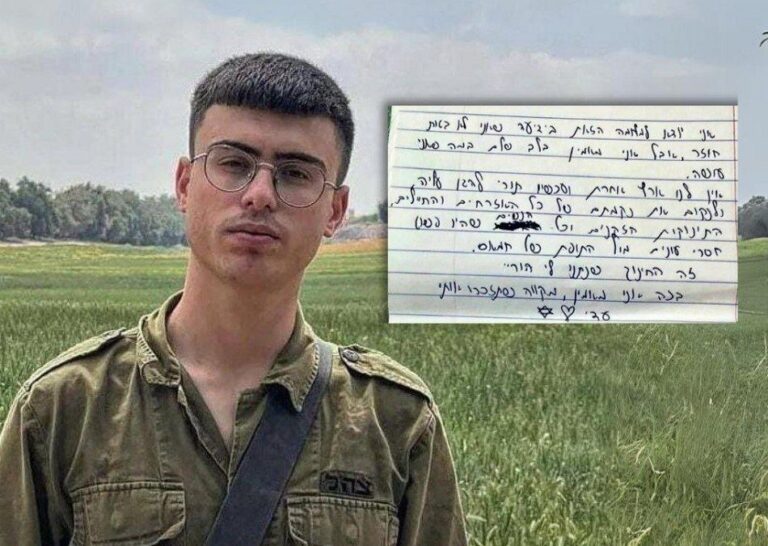 אני יודע למשימה הזאת בידיעה שאני לא באות
חוזר, אבל אני מאמין בלב שלם במה שאני
עושה.
אין לנו ארץ אחרת ועכשיו תורי להגן עליה
ולנקום את נקמתם של כל האזרחים והחיילים,
התינוקות הזקנים וכל הנשים שהיו פשוט
חסרי עונים מול התופת של חמאס.
זה החינוך שנתנו לי הוריי
בכה אני מאמין, מקווה שתזכרו אותי
עדי
צהל